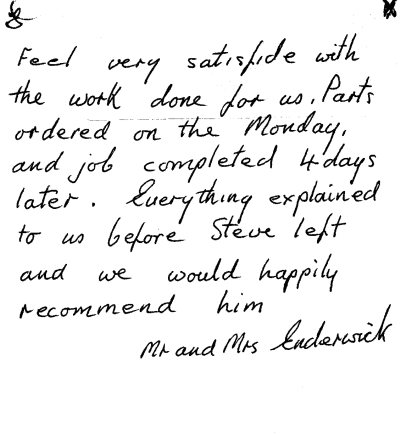 Feel very satisfide with
the work done for us. Parts
ordered on the Monday,
and job completed 4 days
later. Everything explained
to us before Steve left
and we would happily
recommend him
Mr and Mrs Enderwick